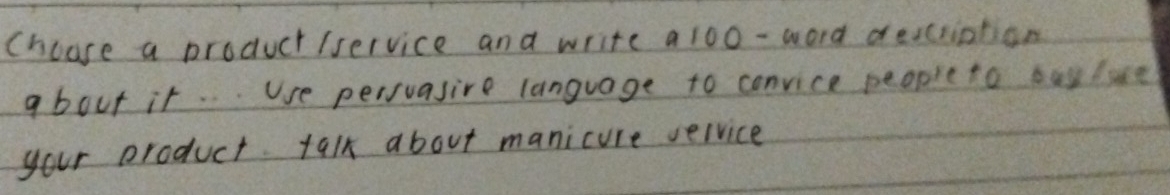 Choose a product/service and write a 100-word description
about it... Use persuasive language to convice people to buy/use
your product. talk about manicure service